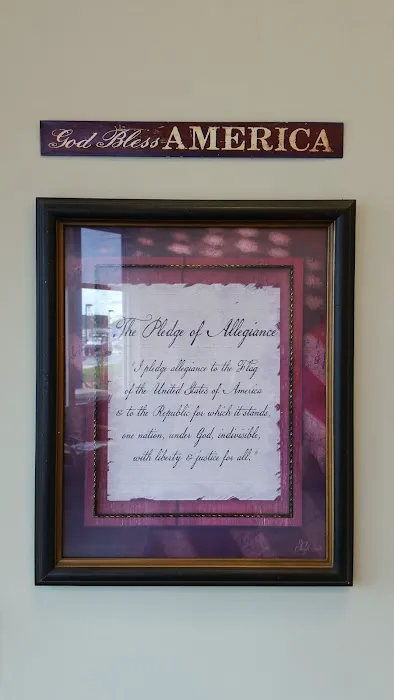 God Bless AMERICA
The Pledge of Allegiance
"I pledge allegiance to the Flag
of the United States of America
& to the Republic for which it stands,
one nation, under God, indivisible,
with liberty & justice for all."